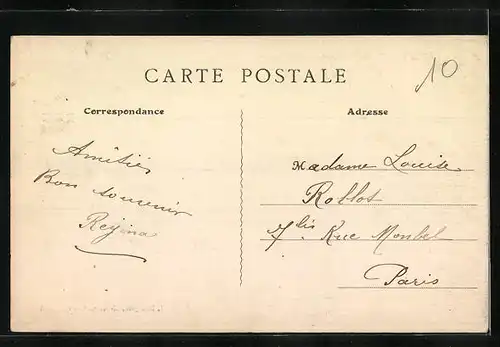 CARTE POSTALE
10
Correspondance
Amitiés
Bon souvenir
Regina
Adresse
Madame Louise
Rollot
7 bis Rue Monbel
Paris